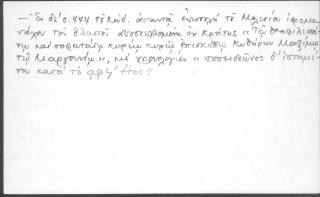 — Ἐν δὲ σ. 444 τοῦ Κώδ. ἀπαντᾷ ἐπιστολὴ τοῦ Ματθαίου ἱερομο-
νάχου τοῦ Βλαστοῦ ἀποστελλομένη ἐκ Κρήτης « Τῷ θεοφιλεστά-
τῳ καὶ σοφωτάτῳ κυρίῳ κυρίῳ ἐπισκόπῳ Κυθήρων Μαξίμῳ
τῷ Μαργουνίῳ », μὲ χρονολογίαν « ποσειδεῶνος δ' ἱσταμέ-
νου κατὰ τὸ αφϟ' ἔτος »